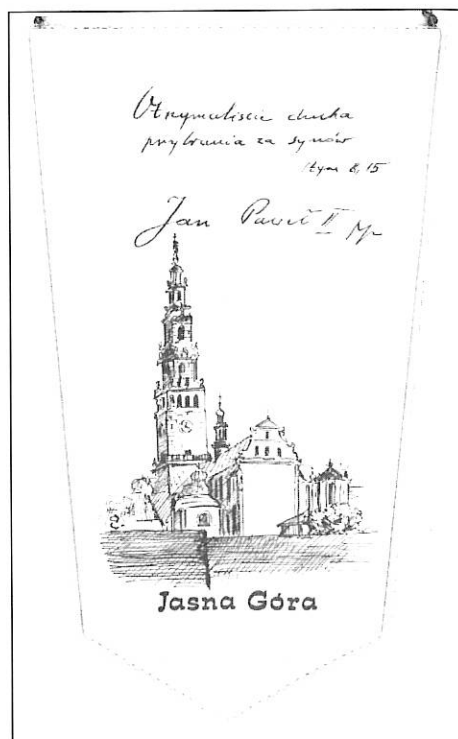 Otrzymaliście ducha
przybrania za synów
Rzym 8, 15
Jan Paweł II
Jasna Góra